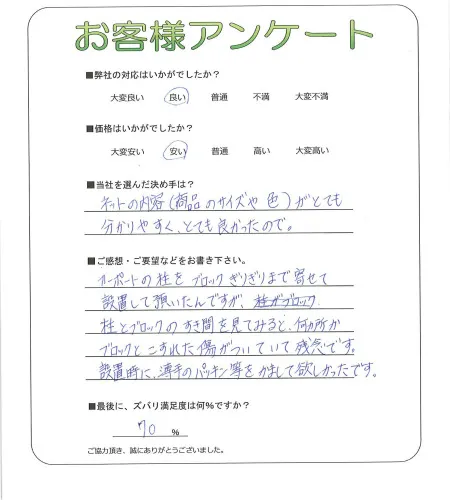 お客様アンケート
■弊社の対応はいかがでしたか?
大変良い 良い 普通 不満 大変不満
■価格はいかがでしたか?
大変安い 安い 普通 高い 大変高い
■当社を選んだ決め手は?
ネットの内容(商品のサイズや色)がとても
分かりやすく、とても良かったので。
■ご感想・ご要望などをお書き下さい。
カーポートの柱をブロックぎりぎりまで寄せて
設置して頂いたんですが、柱がブロック
柱とブロックのすき間を見てみると、何カ所か
ブロックとこすれた傷がついていて残念です。
設置時に、薄手のパッキン等をかまして欲しかったです。
■最後に、ズバリ満足度は何%ですか?
70 %
ご協力頂き、誠にありがとうございました。